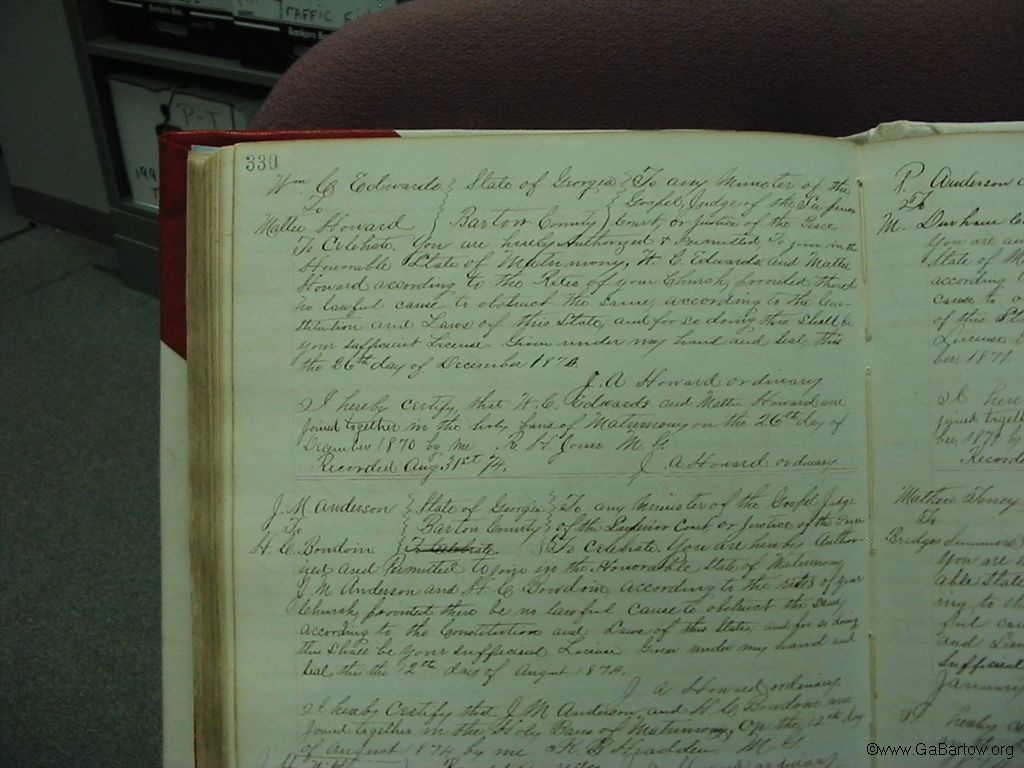 TRAFFIC
Bankers Box
Bankers Bo
P-T
199
330
Wm C Edwards } State of Georgia } To any Minister of the
To } Gospel, Judge of the Superior
Mattie Howard } Bartow County } Court, or Justice of the Peace
To Celebrate. You are hereby Authorized & Permitted To join in the
Honorable State of Matrimony, W. C. Edwards and Mattie
Howard according to the Rites of your Church, provided there be
no lawful cause to obstruct the same, according to the Con-
stitution and Laws of this State, and for so doing this shall be
your sufficient License. Given under my hand and seal, this
the 26th day of December 1870.
J. A. Howard ordinary
I hereby certify that W. C. Edwards and Mattie Howard were
joined together in the holy bans of Matrimony on the 26th day of
December 1870 by me R. H. Jones M. G.
Recorded Aug 31st 74. J A Howard ordinary
J. M Anderson } State of Georgia } To any Minister of the Gospel Judge
To } Bartow County } of the Superior Court or Justice of the Peace
H. C. Bowdoin } To Celebrate } To Celebrate. You are hereby Author
ized and Permitted To join in the Honorable State of Matrimony
J. M Anderson and H C Bowdoin according to the rites of your
Church, provided there be no lawful cause to obstruct the same
according to the Constitution and Laws of this State, and for so doing
this shall be your sufficient License. Given under my hand and
seal, this the 12th day of August 1874.
J A Howard ordinary
I hereby Certify that J M Anderson and H. C Bowdoin were
joined together in the Holy Bans of Matrimony, on the 12th day
of August 1874 by me R. B Headden M G
P. Anderson
To
M. Durham
You are
State of M
according
cause to
of this St
License
ber, 1871.
I here
joined togeth
ber, 1871 by
Recorde
Mathew Toney
To
Bridges Summers
You are
able State
ing to th
ful cau
and La
sufficient
January
I hereby
©www.GaBartow.org